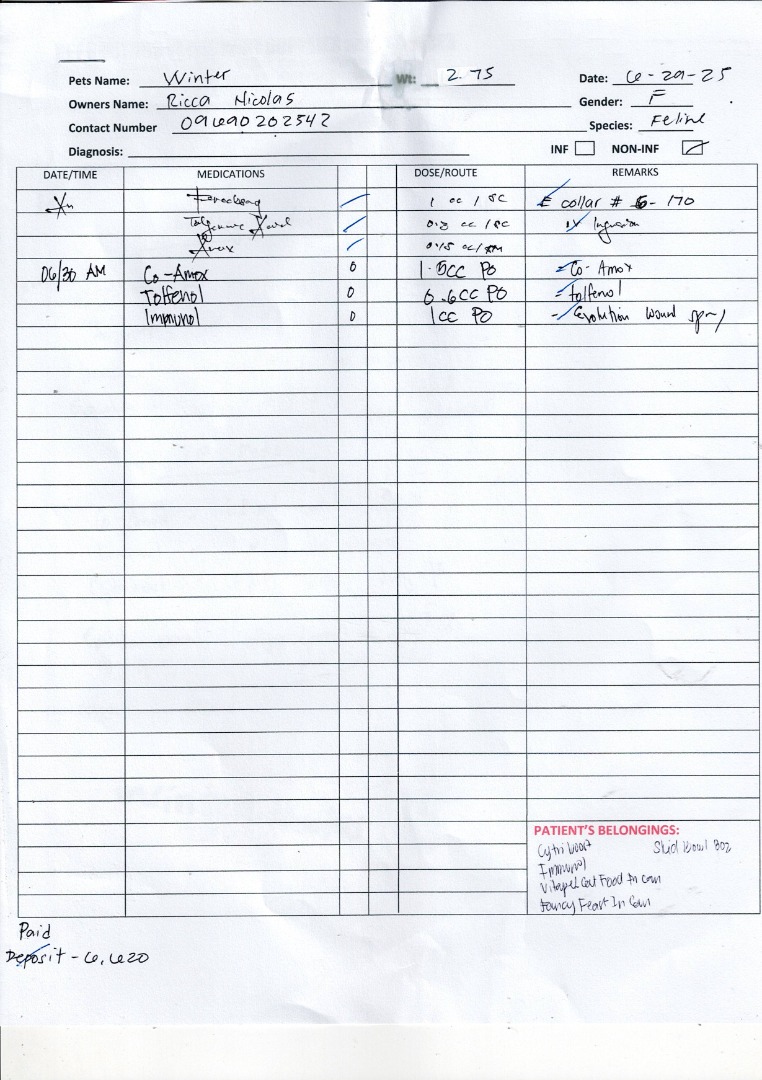 Pets Name: Winter Wt: 2.75 Date: 6-29-25
Owners Name: Ricca Nicolas Gender: F
Contact Number 09690202542 Species: Feline
Diagnosis: INF NON-INF
DATE/TIME MEDICATIONS DOSE/ROUTE REMARKS
1 cc / SC E collar # 6- 170
0.3 cc / SC IV
06/30 AM Co-Amox 0 1.5cc PO - Co-Amox
Tolfenol 0 0.6cc PO - tolfenol
Immunol 0 1cc PO - Evolution wound spray
PATIENT'S BELONGINGS:
Bowl 8oz
Immunol
Cat Food In Can
Fancy Feast In Can
Paid
Deposit - 6,620